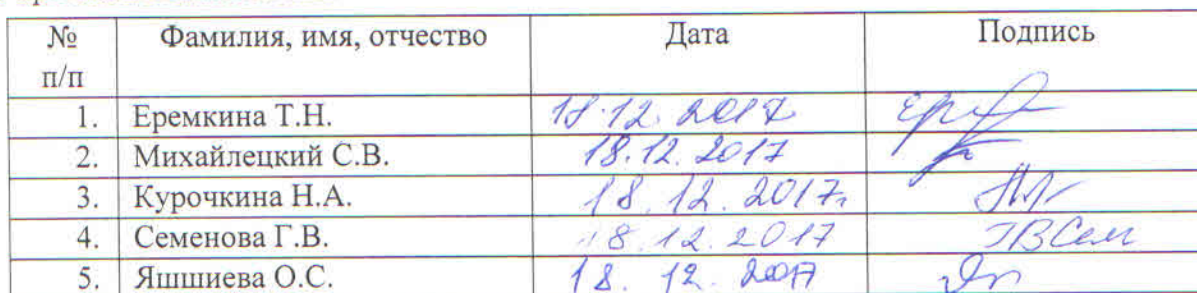 № п/п Фамилия, имя, отчество Дата Подпись
1. Еремкина Т.Н. 18.12.2017
2. Михайлецкий С.В. 18.12.2017
3. Курочкина Н.А. 18.12.2017г
4. Семенова Г.В. 18.12.2017 ГВСем
5. Яшшиева О.С. 18.12.2017